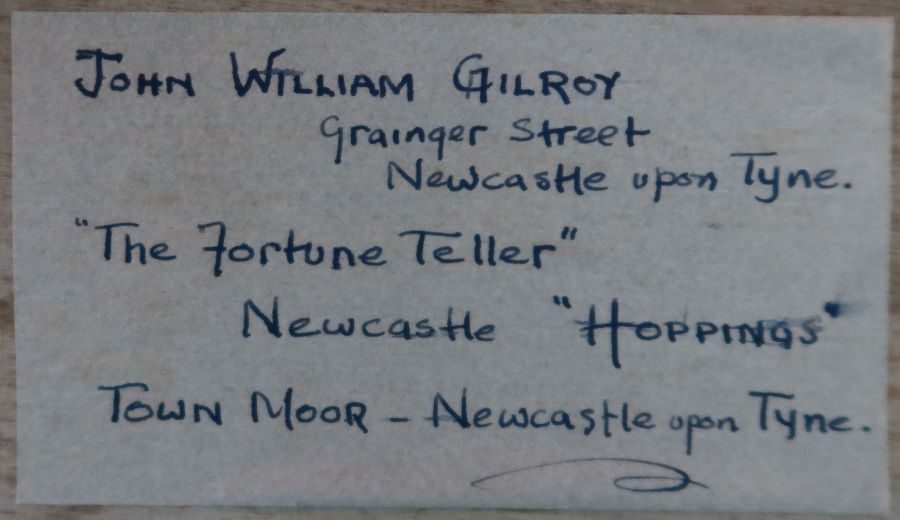 JOHN WILLIAM GILROY
Grainger Street
Newcastle upon Tyne.
"The Fortune Teller"
Newcastle "HOPPINGS"
TOWN MOOR - Newcastle upon Tyne.